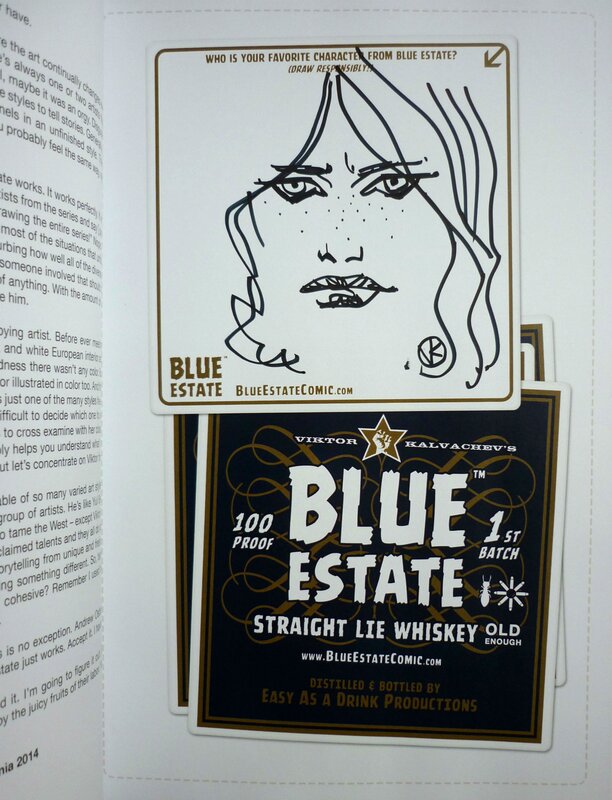 r have.
re the art continually chang
e's always one or two artis
l, maybe it was an orgy.
e styles to tell stories.
nels in an unfinished style.
u probably feel the same way
ate works. It works perfectly.
tists from the series and say
rawing the entire series!"
most of the situations that
urbing how well all of the
someone involved that shou
of anything. With the amount
e him.
oying artist. Before ever mee
and white European interio
dness there wasn't any color
or illustrated in color too. And
s just one of the many styles
ifficult to decide which one to
s to cross examine with her
bly helps you understand what
out let's concentrate on Viktor
able of so many varied art
group of artists. He's like
o tame the West - except
claimed talents and they all
orytelling from unique and
ing something different. So,
cohesive? Remember I used
s is no exception. Andrew
state just works. Accept it. I
d it. I'm going to figure it out
oy the juicy fruits of their labor
nia 2014
WHO IS YOUR FAVORITE CHARACTER FROM BLUE ESTATE?
(DRAW RESPONSIBLY!)
BLUE™
ESTATE
BLUEESTATECOMIC.COM
VIKTOR KALVACHEV'S
BLUE™
100 PROOF
1ST BATCH
ESTATE
STRAIGHT LIE WHISKEY OLD ENOUGH
WWW.BLUEESTATECOMIC.COM
DISTILLED & BOTTLED BY
EASY AS A DRINK PRODUCTIONS